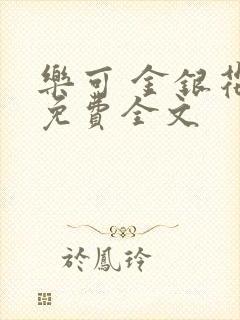 樂可 金銀花
免費全文
於鳳玲